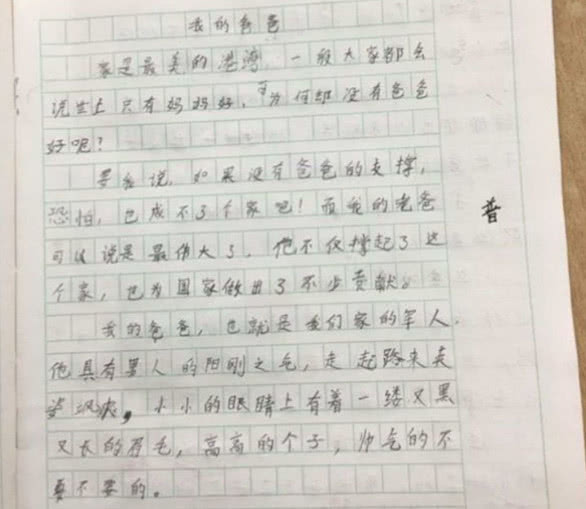 我的爸爸
家是最美的港湾，一般大家都会
说世上只有妈妈好，可为何却没有爸爸
好呢？
要我说，如果没有爸爸的支撑，
恐怕，也成不了个家吧！而我的老爸
可以说是最伟大了，他不仅撑起了这
个家，也为国家做出了不少贡献。
我的爸爸，也就是我们家的军人，
他具有男人的阳刚之气，走起路来英
姿飒爽，小小的眼睛上有着一缕又黑
又长的眉毛，高高的个子，帅气的不
要不要的。
普